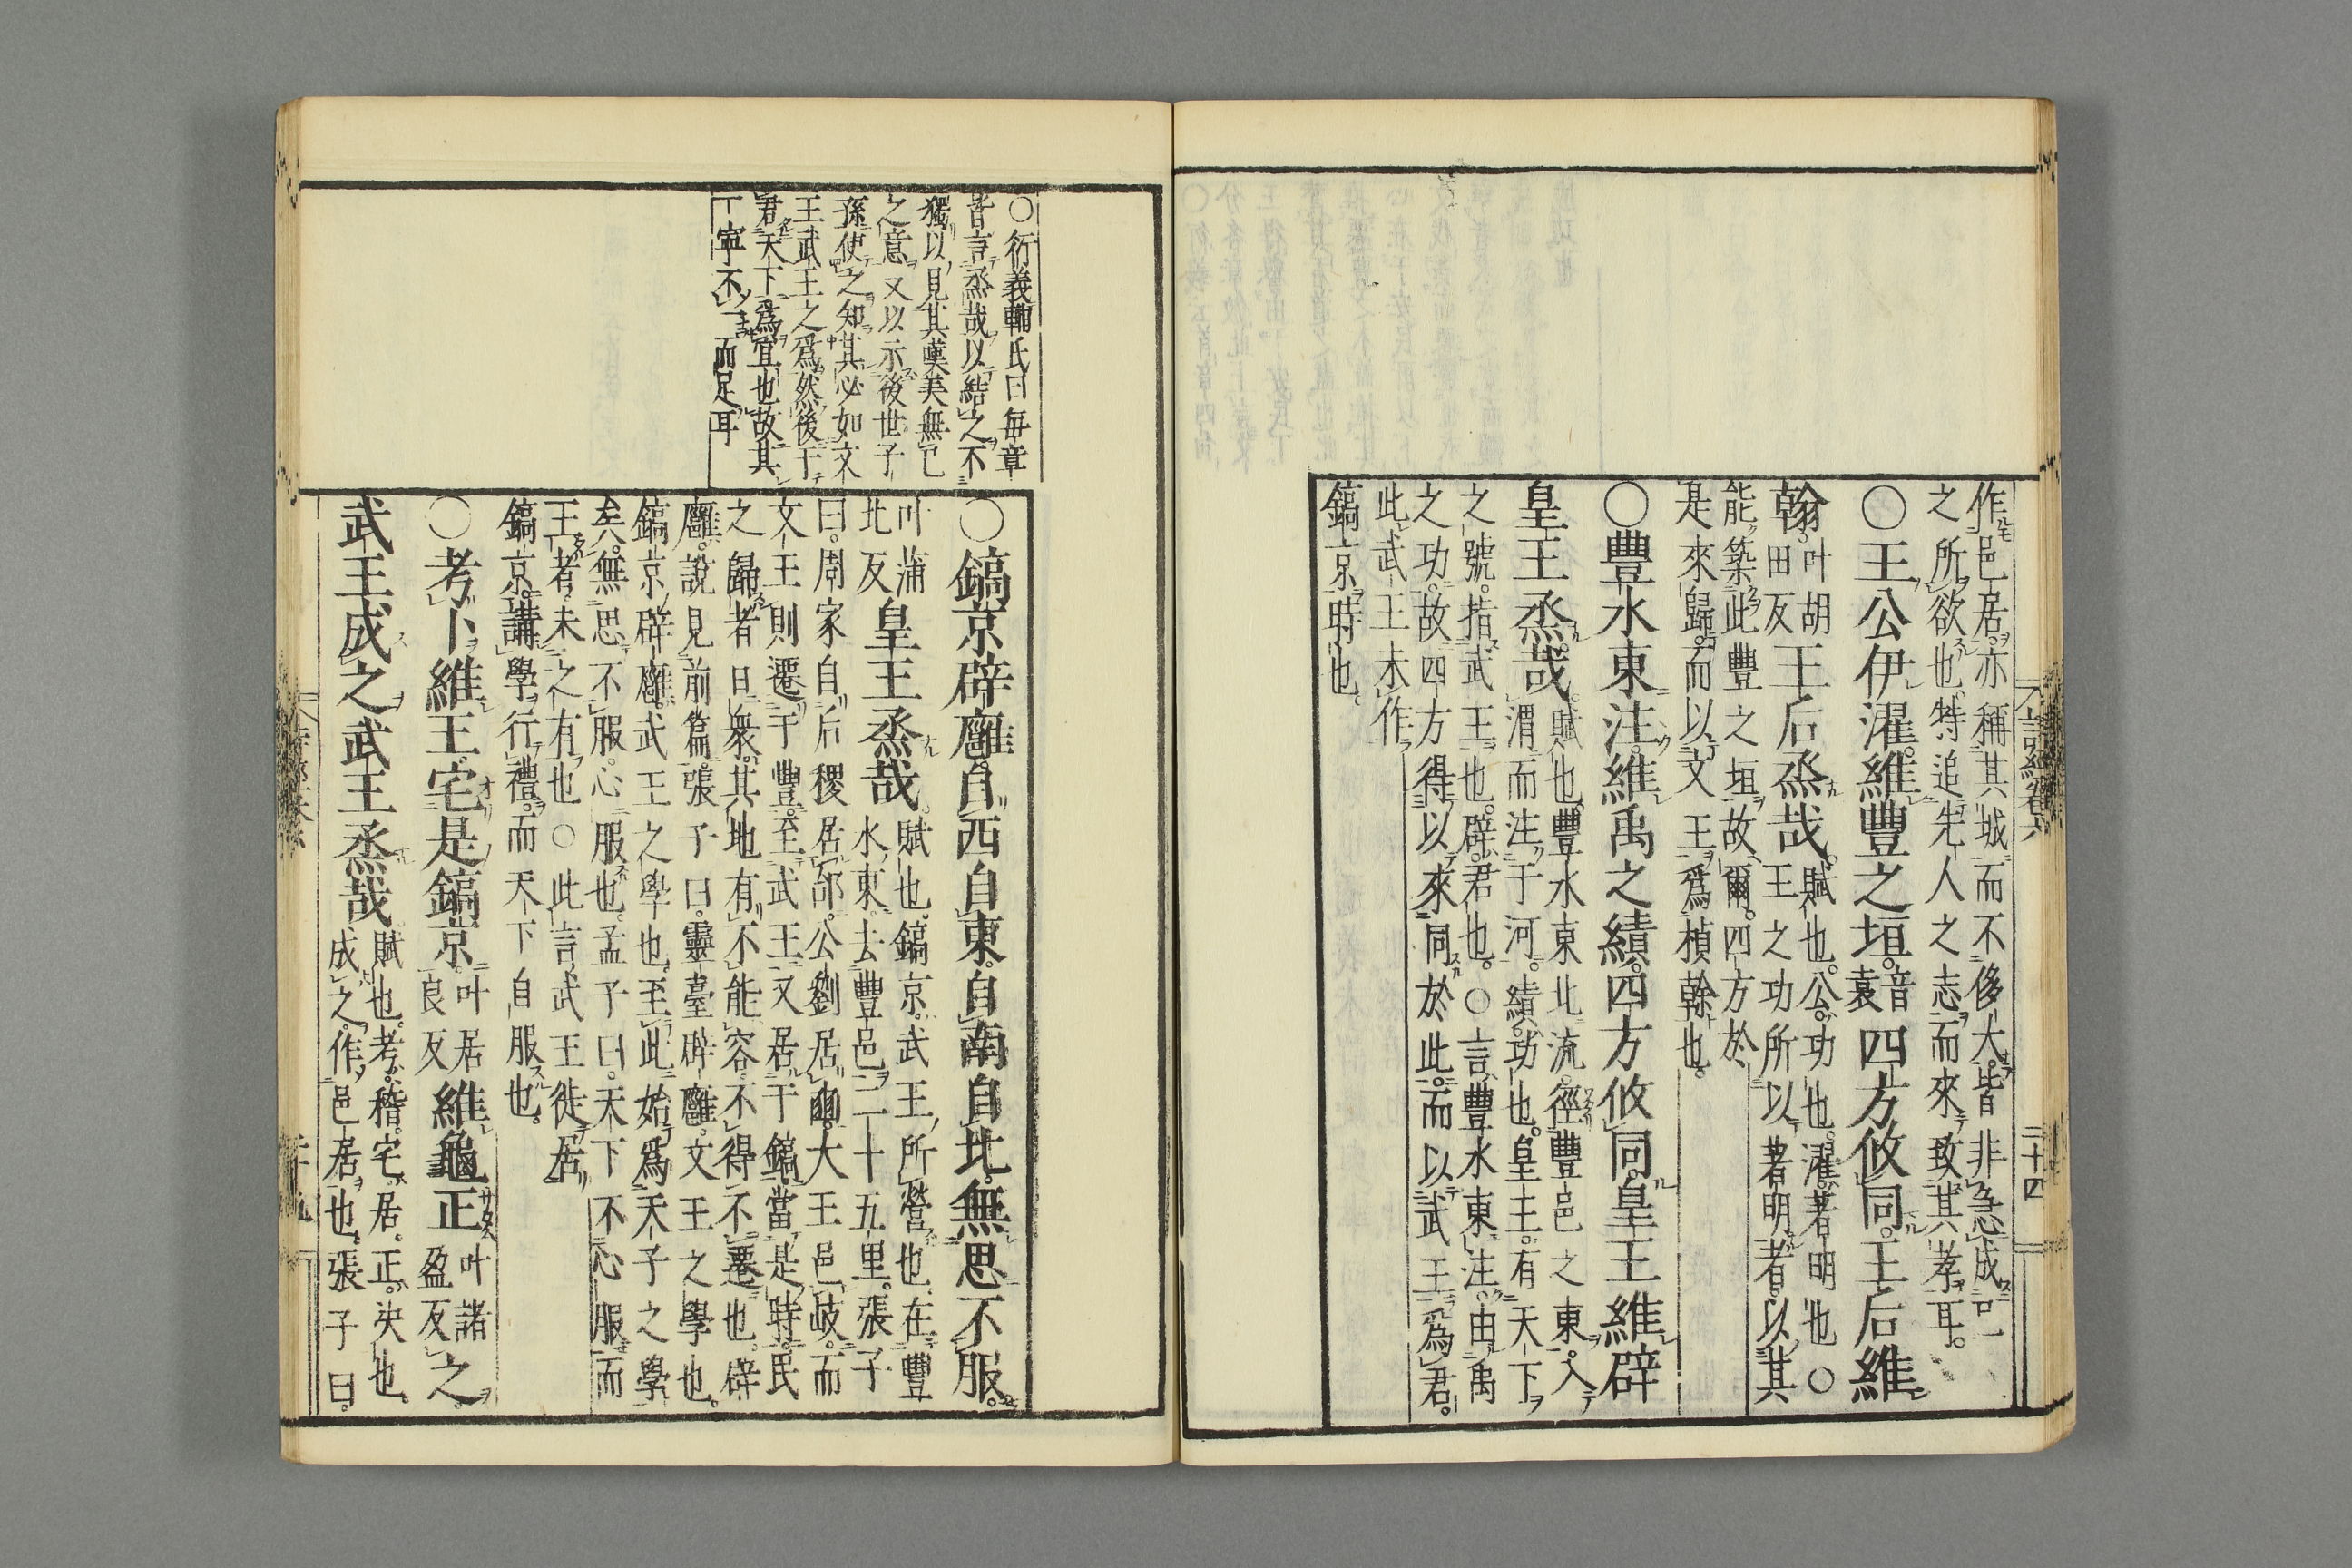 作邑居。亦稱其城而不侈大。皆非急成
之所欲也。特追先人之志而來致其孝耳。
〇王公伊濯。維豐之垣。音袁四方攸同。王后維
翰。叶胡田反王后烝哉。賦也。公。功也。濯。著明也〇
王之功所以著明者。以其
能築此豐之垣故爾。四方於
是來歸。而以文王爲楨榦也。
〇豐水東注。維禹之績。四方攸同。皇王維辟
皇王烝哉。賦也。豐水東北流。徑豐邑之東。入
渭而注于河。績。功也。皇王。有天下
之號。指武王也。辟。君也。〇言豐水東注。由禹
之功。故四方得以來同於此。而以武王爲君。
此武王未作
鎬京時也。
詩經卷六
二十四
〇衍義輔氏曰每章
皆言烝哉以結之不
獨以見其嘆美無已
之意又以示後世子
孫使之知其必如文
王武王之爲然後于
君天下爲宜也故其
丁寧不一而足耳
〇鎬京辟廱。自西自東。自南自北。無思不服。
叶蒲北反皇王烝哉。賦也。鎬京。武王所營也。在豐
水東。去豐邑二十五里。張子
曰。周家自后稷居邰。公劉居豳。大王邑岐。而
文王則遷于豐。至武王又居于鎬。當是時。民
之歸者日衆。其地有不能容。不得不遷也。辟
廱。說見前篇。張子曰。靈臺辟廱。文王之學也。
鎬京辟廱。武王之學也。至此始爲天子之學
矣。無思不服。心服也。孟子曰。天下不心服而
王者。未之有也〇此言武王徙居
鎬京。講學行禮。而天下自服也。
〇考卜維王。宅是鎬京。叶居良反維龜正叶諸盈反之。
武王成之武王烝哉。賦也。考。稽。宅。居。正。决也。
成之。作邑居也。張子曰。